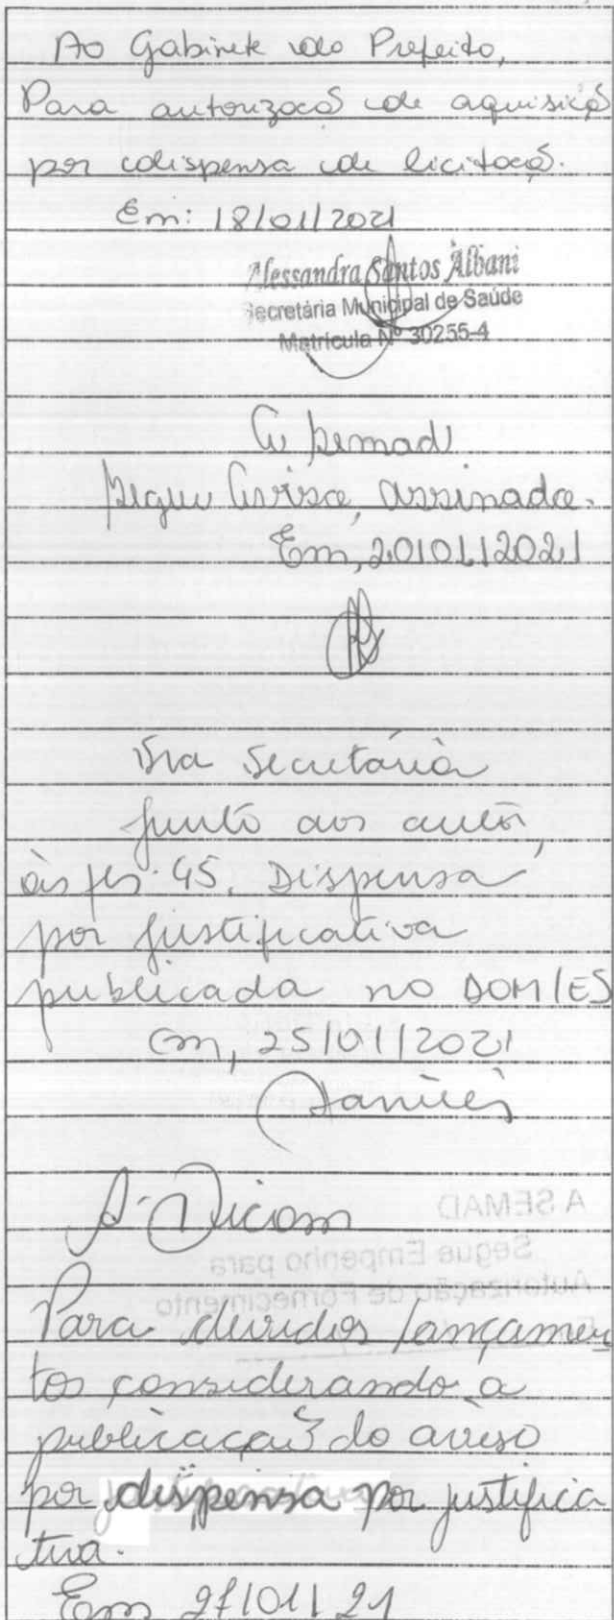 Ao Gabinete do Prefeito,
Para autorização de aquisição
por dispensa de licitação.
Em: 18/01/2021
Alessandra Santos Albani
Secretária Municipal de Saúde
Matrícula Nº 30255-4
Semad
Segue assinada.
Em, 20/01/2021
Sra Secretária
Junto aos autos,
às fls. 45, Dispensa
por justificativa
publicada no DOM/ES
Em, 25/01/2021
A SEMAD
Segue Empenho para
Autorização de Fornecimento
À Dicom
Para devidos lançamen
tos considerando a
publicação do aviso
por dispensa por justifica
tiva.
Em 27/01/21